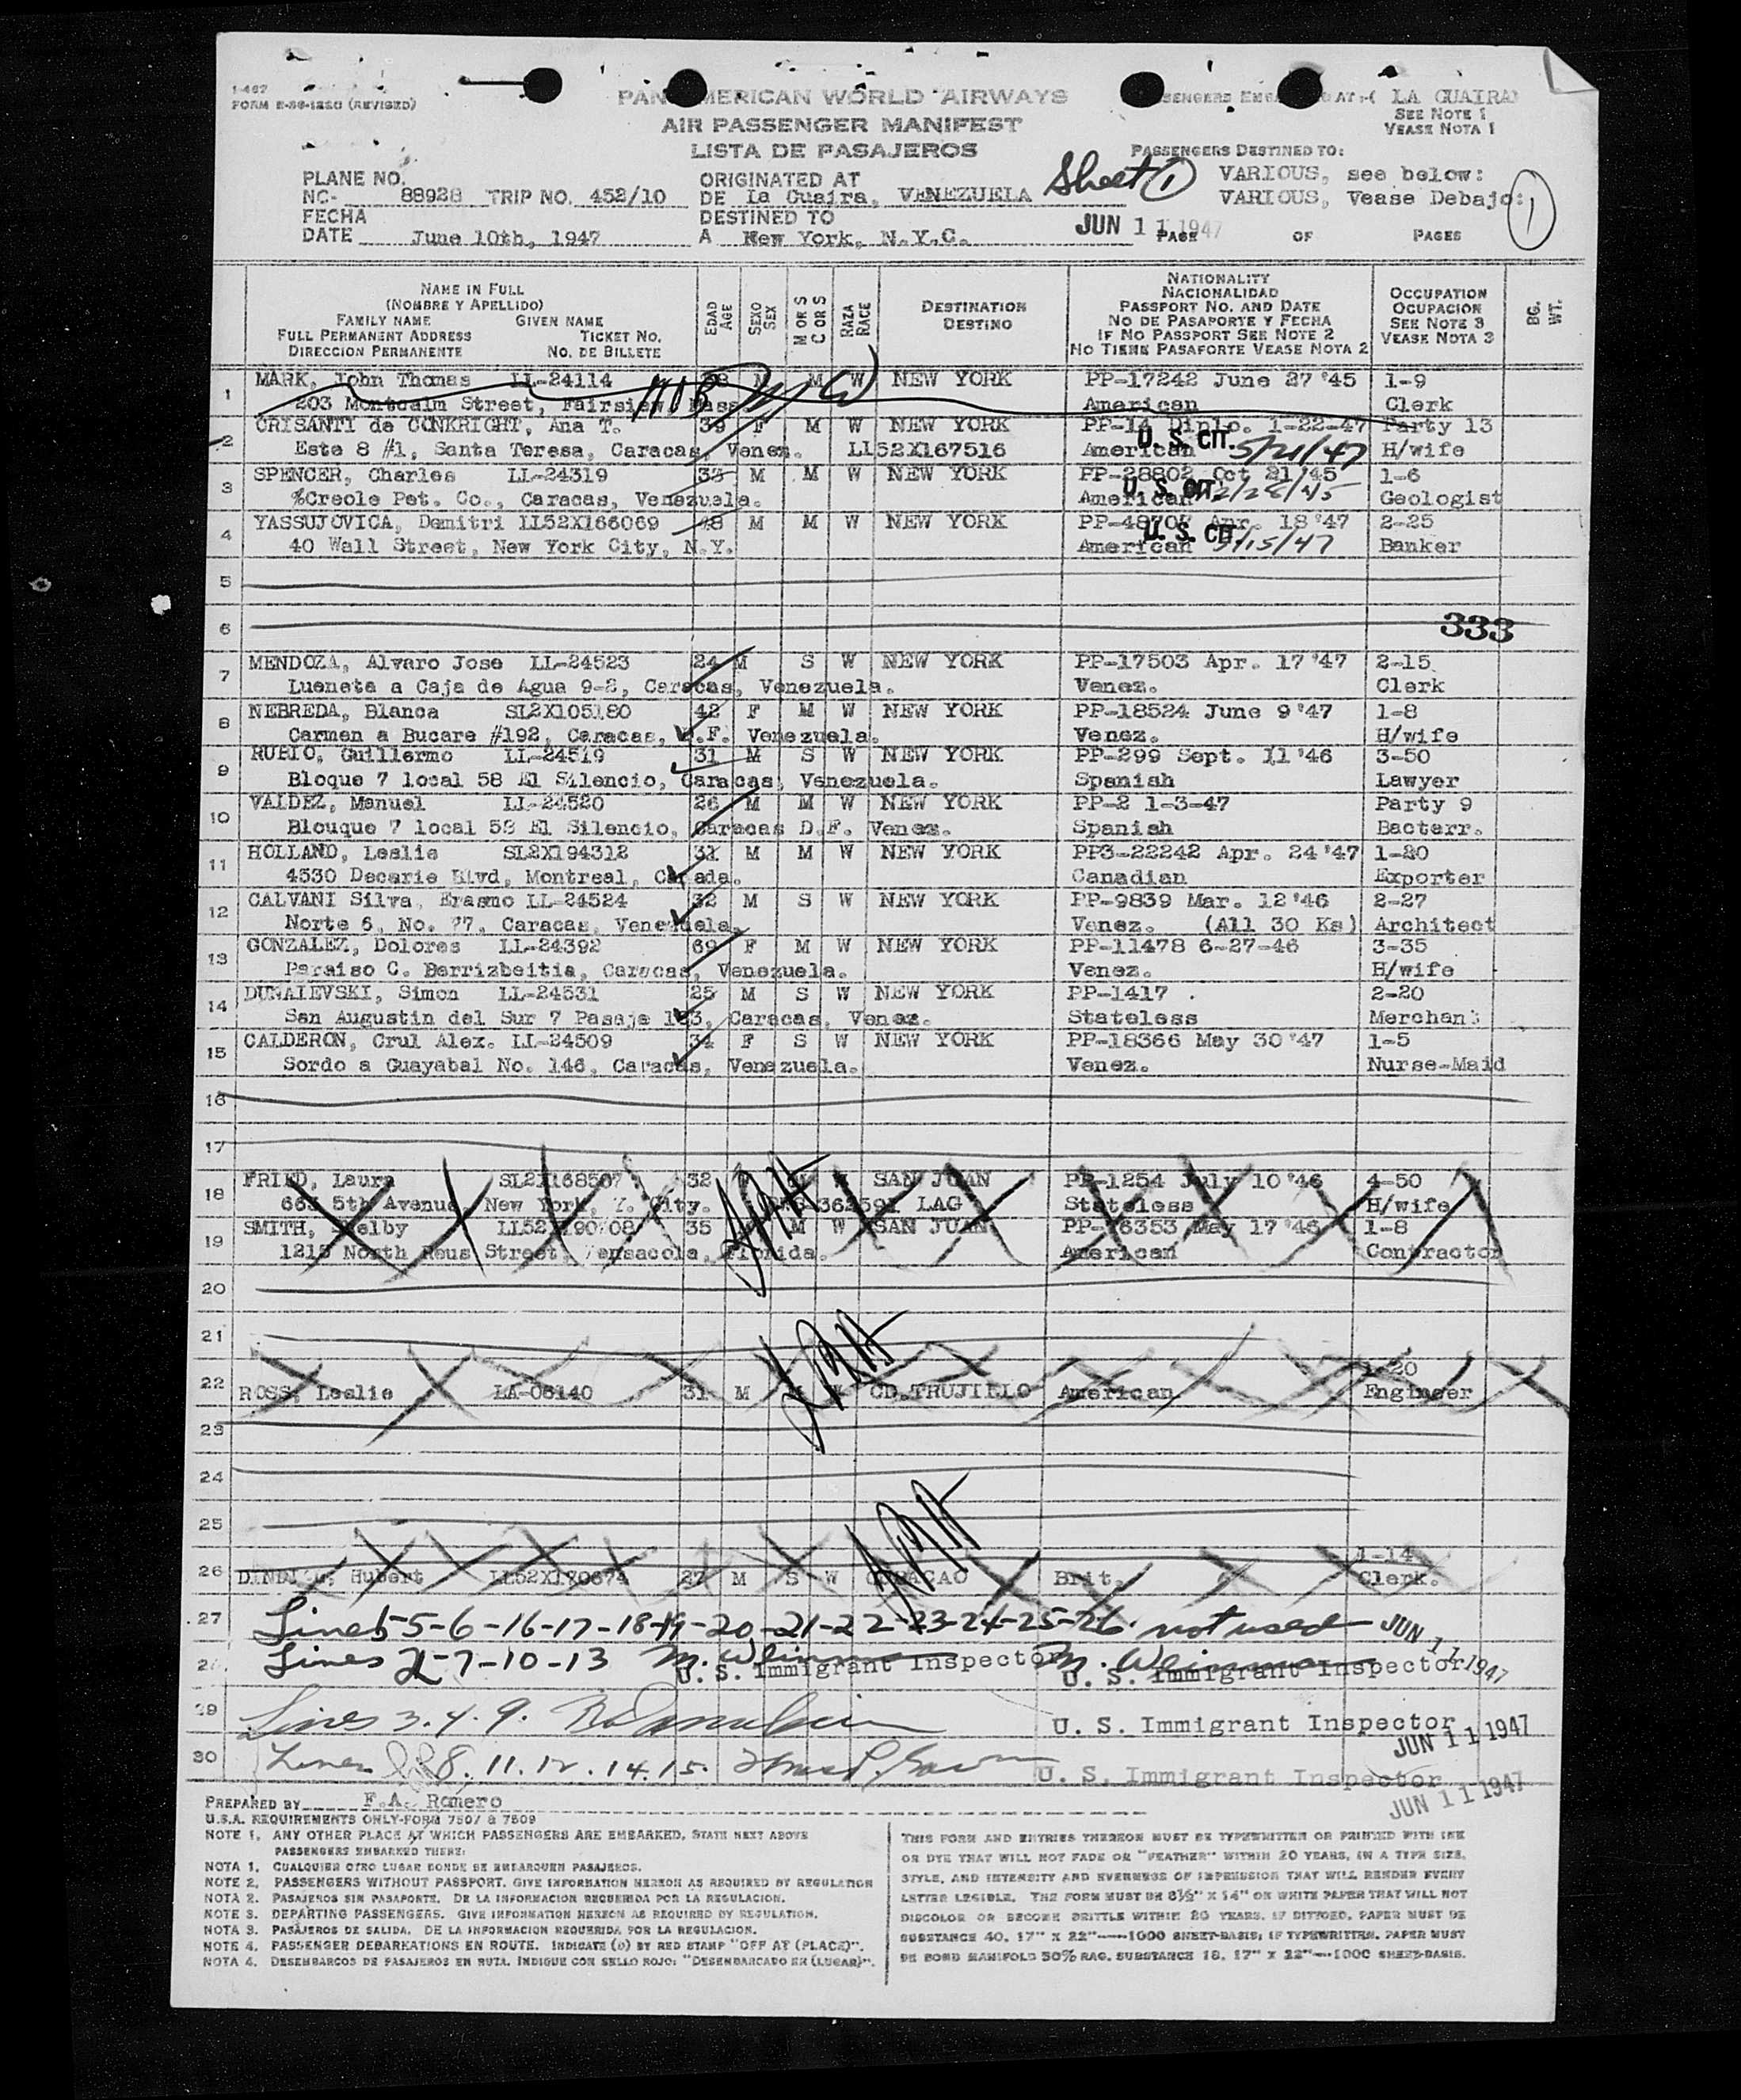 I-467
FORM E-36-1220 (REVISED)
PAN AMERICAN WORLD AIRWAYS
AIR PASSENGER MANIFEST
LISTA DE PASAJEROS
AT:-( LA GUAIRA)
SEE NOTE 1
VEASE NOTA 1
PASSENGERS DESTINED TO:
VARIOUS, see below:
VARIOUS, Vease Debajo:
Sheet 1
1
PLANE NO.
NC- 88928 TRIP NO. 452/10
FECHA
DATE June 10th, 1947
ORIGINATED AT
DE La Guaira, VENEZUELA
DESTINED TO
A New York, N.Y.C.
JUN 11 1947
PAGE OF PAGES
NAME IN FULL
(NOMBRE Y APELLIDO)
FAMILY NAME GIVEN NAME
FULL PERMANENT ADDRESS TICKET NO.
DIRECCION PERMANENTE NO. DE BILLETE
EDAD AGE
SEXO SEX
M OR S C OR S
RAZA RACE
DESTINATION
DESTINO
NATIONALITY
NACIONALIDAD
PASSPORT NO. AND DATE
NO DE PASAPORTE Y FECHA
IF NO PASSPORT SEE NOTE 2
NO TIENE PASAPORTE VEASE NOTA 2
OCCUPATION
OCUPACION
SEE NOTE 3
VEASE NOTA 3
BG. WT.
1 MARK, John Thomas LL-24114 M M W NEW YORK PP-17242 June 27 '45 1-9
203 Montcalm Street, Mass. American Clerk
2 CRISANTI de CONKRIGHT, Ana T. 39 F M W NEW YORK PP-14 Diplo. 1-22-47 Party 13
Este 8 #1, Santa Teresa, Caracas, Venez. LL52X167516 American U. S. CIT. 5/21/47 H/wife
3 SPENCER, Charles LL-24319 33 M M W NEW YORK PP-28802 Oct 21 '45 1-6
%Creole Pet. Co., Caracas, Venezuela. American U. S. CIT Geologist
4 YASSUJOVICA, Demitri LL52X166069 48 M M W NEW YORK Apr. 18 '47 2-25
40 Wall Street, New York City, N.Y. American U. S. CIT. Banker
5
6 333
7 MENDOZA, Alvaro Jose LL-24523 24 M S W NEW YORK PP-17503 Apr. 17 '47 2-15
Lueneta a Caja de Agua 9-2, Caracas, Venezuela. Venez. Clerk
8 NEBREDA, Blanca SL2X105180 42 F M W NEW YORK PP-18524 June 9 '47 1-8
Carmen a Bucare #192, Caracas, D.F. Venezuela. Venez. H/wife
9 RUBIO, Guillermo LL-24519 31 M S W NEW YORK PP-299 Sept. 11 '46 3-50
Bloque 7 local 58 El Silencio, Caracas, Venezuela. Spanish Lawyer
10 VALDEZ, Manuel LL-24520 26 M M W NEW YORK PP-2 1-3-47 Party 9
Blouque 7 local 58 El Silencio, Caracas D.F. Venez. Spanish Bacterr.
11 HOLLAND, Leslie SL2X194312 31 M M W NEW YORK PP3-22242 Apr. 24 '47 1-20
4530 Decarie Blvd, Montreal, Canada. Canadian Exporter
12 CALVANI Silva, Erasmo LL-24524 32 M S W NEW YORK PP-9839 Mar. 12 '46 2-27
Norte 6, No. 77, Caracas, Venezuela. Venez. (All 30 Ks) Architect
13 GONZALEZ, Dolores LL-24392 69 F M W NEW YORK PP-11478 6-27-46 3-35
Paraiso C. Berrizbeitia, Caracas, Venezuela. Venez. H/wife
14 DUNAIEVSKI, Simon LL-24531 25 M S W NEW YORK PP-1417 2-20
San Augustin del Sur 7 Pasaje 103, Caracas, Venez. Stateless Merchant
15 CALDERON, Crul Alex. LL-24509 34 F S W NEW YORK PP-18366 May 30 '47 1-5
Sordo a Guayabal No. 146, Caracas, Venezuela. Venez. Nurse-Maid
16
17
18 FRIED, Laura 32 SAN JUAN PP-1254 July 10 '46 4-50
5th Avenue, New York, City. LAG Stateless H/wife
19 SMITH, 35 M W SAN JUAN May 17 '46 1-8
1215 North Reus Street, Pensacola, Florida. American Contractor
20
21
22 ROSS, Leslie LA-06140 31 M CD.TRUJILLO American 1-20 Engineer
23
24
25
26 Hubert LL52X170674 27 M S W CURACAO Brit. 1-14 Clerk.
27 Lines 1-5-6-16-17-18-19-20-21-22-23-24-25-26 not used JUN 11 1947
28 Lines 2-7-10-13 M. Weinman U. S. Immigrant Inspector M. Weinman U. S. Immigrant Inspector
29 Lines 3.4.9. U. S. Immigrant Inspector JUN 11 1947
30 Lines 8.11.12.14.15. U. S. Immigrant Inspector JUN 11 1947
PREPARED BY F.A. Romero
U.S.A. REQUIREMENTS ONLY-FORM 7507 & 7509
NOTE 1. ANY OTHER PLACE AT WHICH PASSENGERS ARE EMBARKED, STATE NEXT ABOVE
PASSENGERS EMBARKED THERE:
NOTA 1. CUALQUIER OTRO LUGAR DONDE SE EMBARQUEN PASAJEROS.
NOTE 2. PASSENGERS WITHOUT PASSPORT. GIVE INFORMATION HEREON AS REQUIRED BY REGULATION
NOTA 2. PASAJEROS SIN PASAPORTE. DE LA INFORMACION REQUERIDA POR LA REGULACION.
NOTE 3. DEPARTING PASSENGERS. GIVE INFORMATION HEREON AS REQUIRED BY REGULATION.
NOTA 3. PASAJEROS DE SALIDA. DE LA INFORMACION REQUERIDA POR LA REGULACION.
NOTE 4. PASSENGER DEBARKATIONS EN ROUTE. INDICATE (D) BY RED STAMP "OFF AT (PLACE)".
NOTA 4. DESEMBARCOS DE PASAJEROS EN RUTA. INDIQUE CON SELLO ROJO: "DESEMBARCADO EN (LUGAR)".
THIS FORM AND ENTRIES THEREON MUST BE TYPEWRITTEN OR PRINTED WITH INK
OR DYE THAT WILL NOT FADE OR "FEATHER" WITHIN 20 YEARS, IN A TYPE SIZE,
STYLE, AND INTENSITY AND EVENNESS OF IMPRESSION THAT WILL RENDER EVERY
LETTER LEGIBLE. THE FORM MUST BE 8½" X 14" ON WHITE PAPER THAT WILL NOT
DISCOLOR OR BECOME BRITTLE WITHIN 20 YEARS. IF DITTOED, PAPER MUST BE
SUBSTANCE 40, 17" X 22"----1000 SHEET-BASIS; IF TYPEWRITTEN, PAPER MUST
BE BOND MANIFOLD 50% RAG, SUBSTANCE 18, 17" X 22"---1000 SHEET-BASIS.